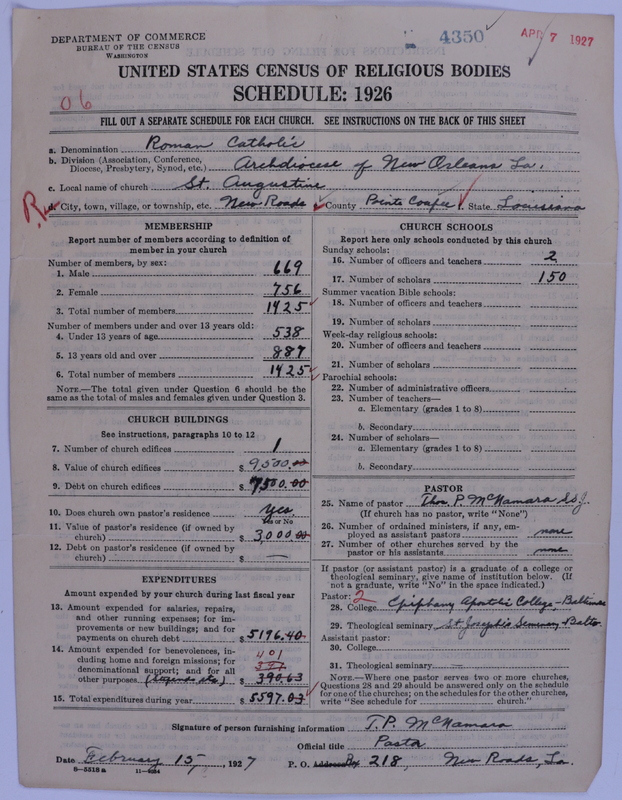 DEPARTMENT OF COMMERCE
BUREAU OF THE CENSUS
WASHINGTON
4350
APR 7 1927
UNITED STATES CENSUS OF RELIGIOUS BODIES
SCHEDULE: 1926
06
FILL OUT A SEPARATE SCHEDULE FOR EACH CHURCH. SEE INSTRUCTIONS ON THE BACK OF THIS SHEET
a. Denomination Roman Catholic
b. Division (Association, Conference, Diocese, Presbytery, Synod, etc.) Archdiocese of New Orleans La.
c. Local name of church St. Augustine
d. City, town, village, or township, etc. New Roads County Pointe Coupee State Louisiana
MEMBERSHIP
Report number of members according to definition of
member in your church
Number of members, by sex:
1. Male 669
2. Female 756
3. Total number of members 1425
Number of members under and over 13 years old:
4. Under 13 years of age 538
5. 13 years old and over 887
6. Total number of members 1425
NOTE.—The total given under Question 6 should be
same as the total of males and females given under Question 3.
CHURCH BUILDINGS
See instructions, paragraphs 10 to 12
7. Number of church edifices 1
8. Value of church edifices $ 9,500.00
9. Debt on church edifices $ 7,500.00
10. Does church own pastor's residence yes
Yes or No
11. Value of pastor's residence (if owned by
church) $ 3,000.00
12. Debt on pastor's residence (if owned by
church) $ —
EXPENDITURES
Amount expended by your church during last fiscal year
13. Amount expended for salaries, repairs,
and other running expenses; for im-
provements or new buildings; and for
payments on church debt $ 5196.40
14. Amount expended for benevolences, in-
cluding home and foreign missions; for 401
denominational support; and for all
other purposes. $ 390.63
15. Total expenditures during year $ 5597.03
CHURCH SCHOOLS
Report here only schools conducted by this church
Sunday schools:
16. Number of officers and teachers 2
17. Number of scholars 150
Summer vacation Bible schools:
18. Number of officers and teachers
19. Number of scholars
Week-day religious schools:
20. Number of officers and teachers
21. Number of scholars
Parochial schools:
22. Number of administrative officers
23. Number of teachers—
a. Elementary (grades 1 to 8)
b. Secondary
24. Number of scholars—
a. Elementary (grades 1 to 8)
b. Secondary
PASTOR
25. Name of pastor Thos. P. McNamara S.S.J.
(If church has no pastor, write "None")
26. Number of ordained ministers, if any, em-
ployed as assistant pastors none
27. Number of other churches served by the
pastor or his assistants none
If pastor (or assistant pastor) is a graduate of a college or
theological seminary, give name of institution below. (If
not a graduate, write "No" in the space indicated.)
Pastor: 2
28. College Epiphany Apostolic College-Baltimore
29. Theological seminary St Joseph's Seminary-Balto
Assistant pastor:
30. College
31. Theological seminary —
NOTE.—Where one pastor serves two or more churches,
Questions 28 and 29 should be answered only on the schedule
for one of the churches; on the schedules for the other churches,
write "See schedule for church."
Signature of person furnishing information T.P. McNamara
Official title Pastor
Date February 15, 1927 P. O. Address Bx 218, New Roads, La.
8—5518a 11—9084